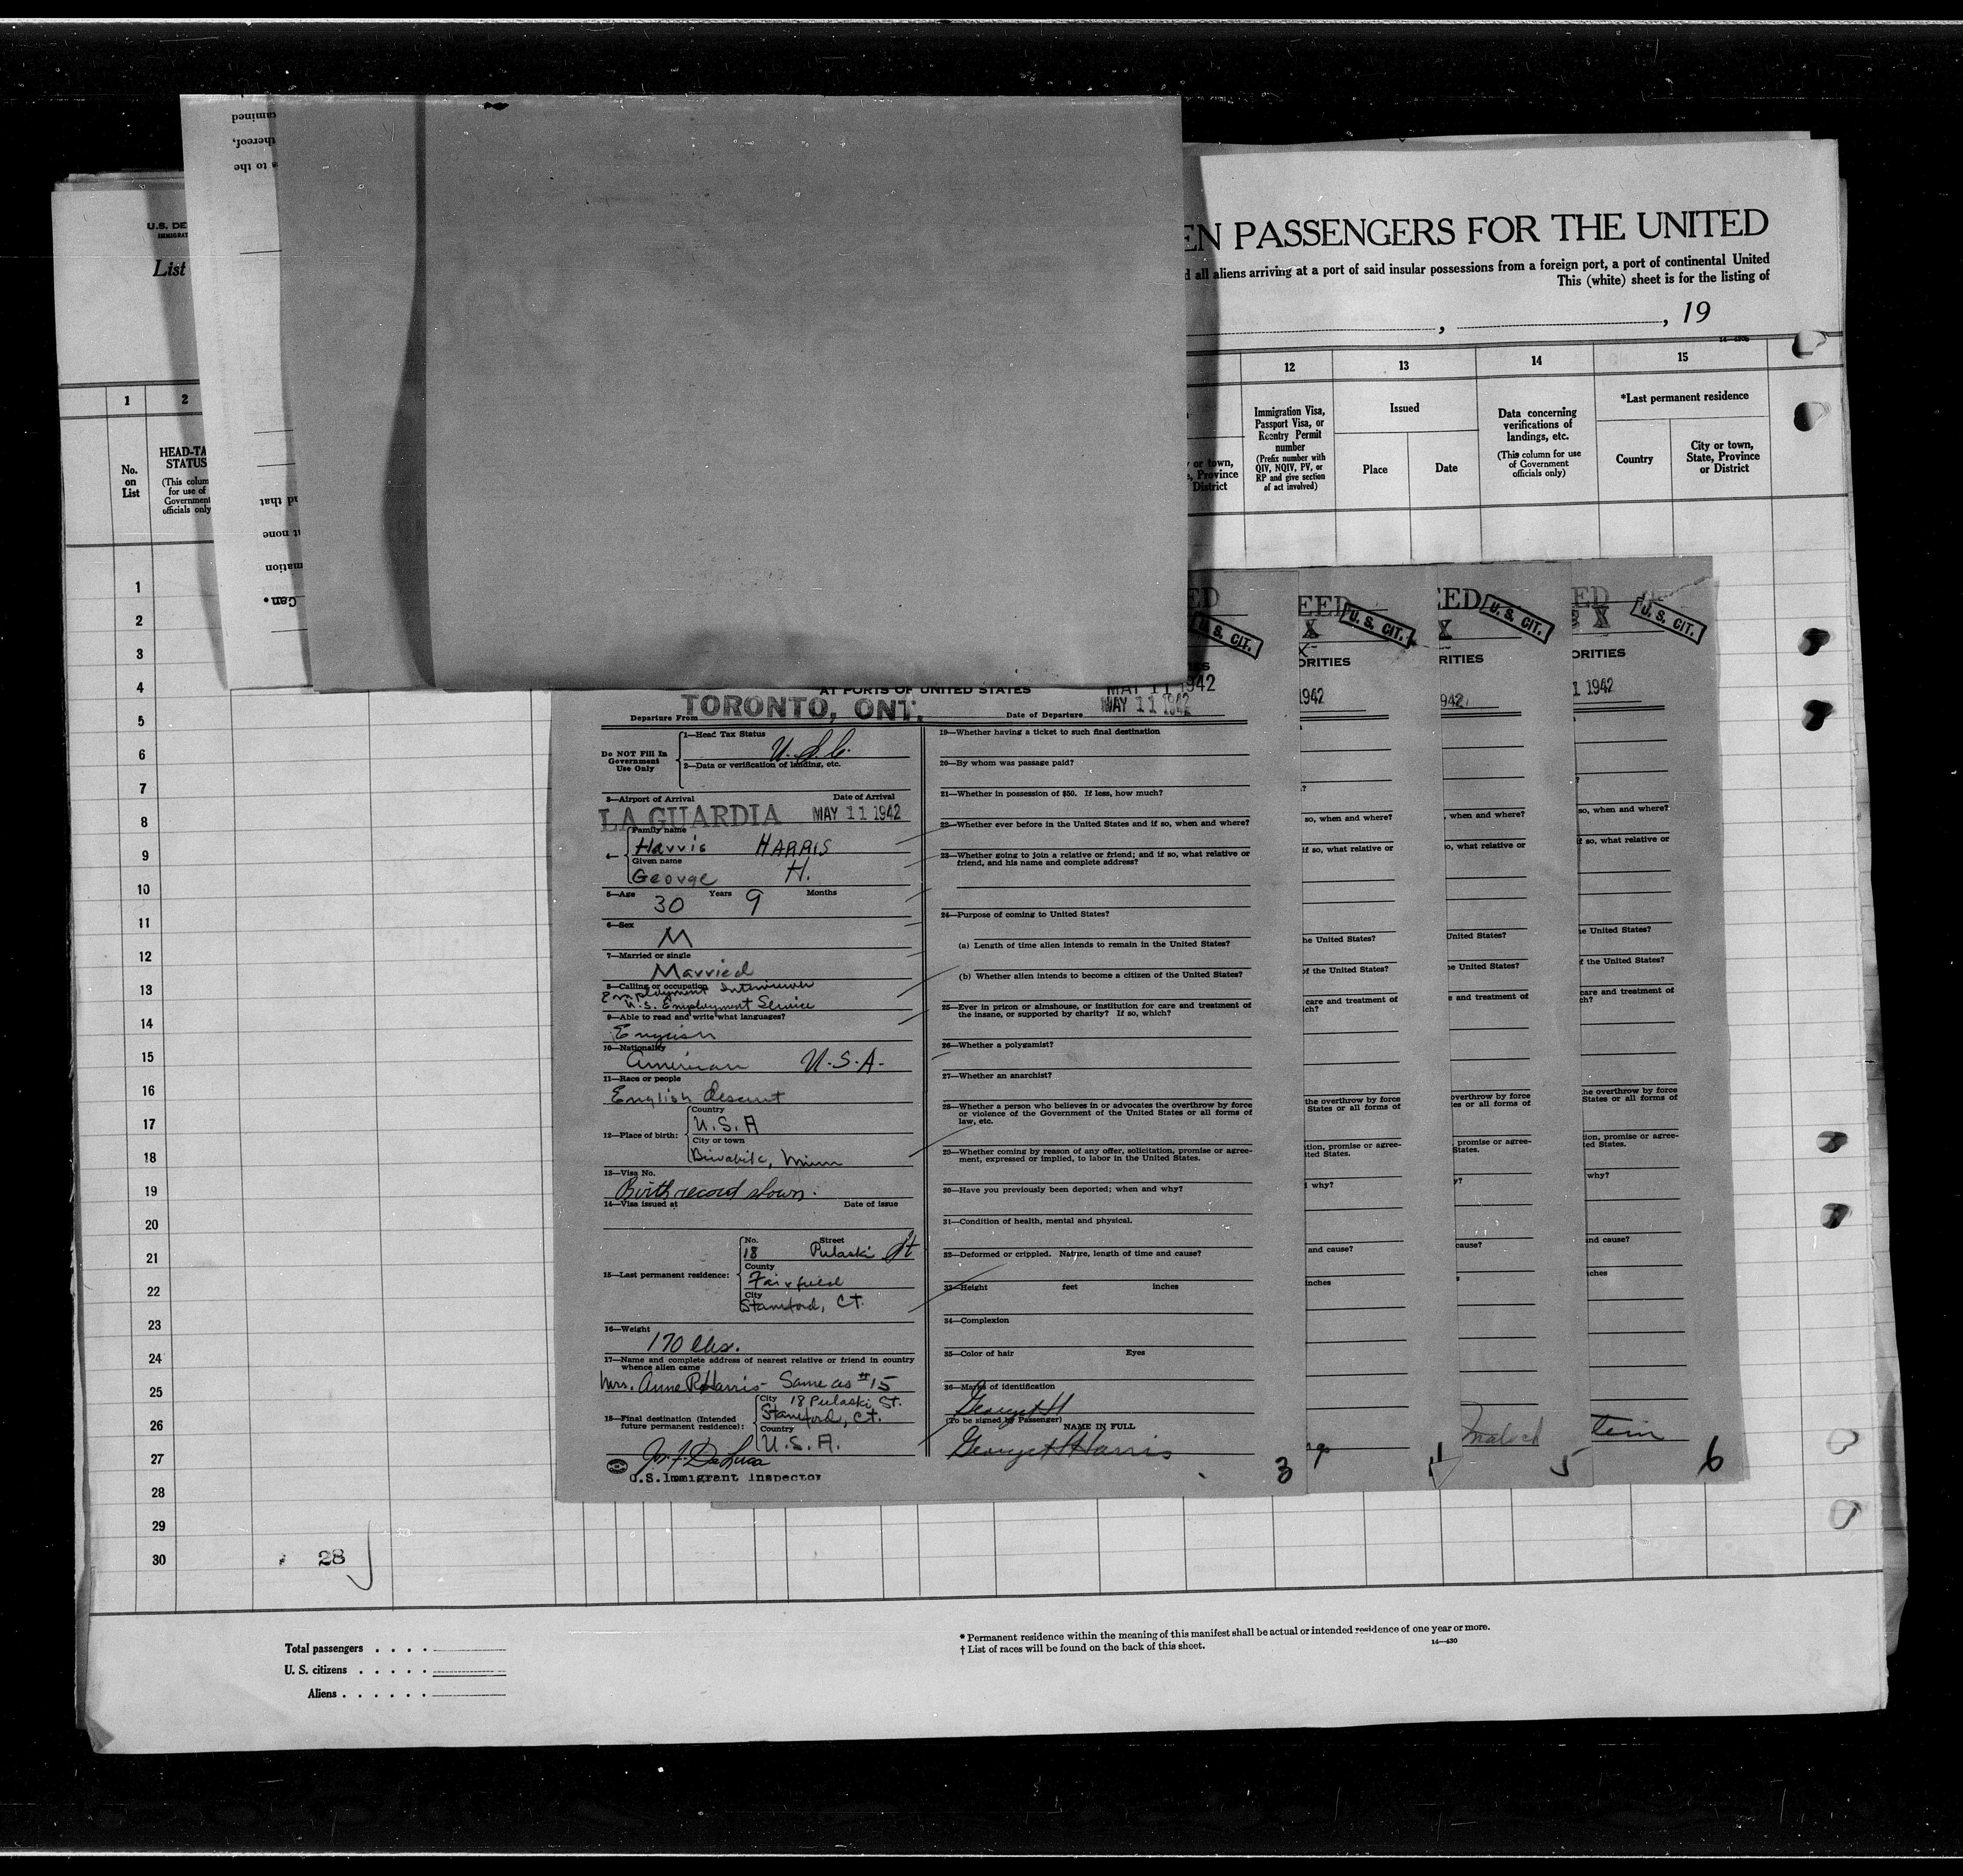 amined
thereof,
s to the
d that
t none
mation
Can.
U.S. DE
IMMIGRAT
List
EN PASSENGERS FOR THE UNITED
d all aliens arriving at a port of said insular possessions from a foreign port, a port of continental United
This (white) sheet is for the listing of
, , 19
1 2 12 13 14 15
No. on List
HEAD-TA
STATUS
(This colum
for use of
Government
officials only
y or town,
e, Province
District
Immigration Visa,
Passport Visa, or
Reentry Permit
number
(Prefix number with
QIV, NQIV, PV, or
RP and give section
of act involved)
Issued
Place Date
Data concerning
verifications of
landings, etc.
(This column for use
of Government
officials only)
*Last permanent residence
Country
City or town,
State, Province
or District
1
2
3
4
5
6
7
8
9
10
11
12
13
14
15
16
17
18
19
20
21
22
23
24
25
26
27
28
29
30
28
AT PORTS OF UNITED STATES
MAY 11 1942
Departure From TORONTO, ONT. Date of Departure MAY 11 1942
Do NOT Fill In
Government
Use Only
1—Head Tax Status
U.S.C.
2—Data or verification of landing, etc.
3—Airport of Arrival Date of Arrival
LA GUARDIA MAY 11 1942
4— Family name
Harris HARRIS
Given name
George H.
5—Age 30 Years 9 Months
6—Sex
M
7—Married or single
Married
8—Calling or occupation
Employment Interviewer
U.S. Employment Service
9—Able to read and write what languages?
English
10—Nationality
American U.S.A.
11—Race or people
English descent
12—Place of birth:
Country
U.S.A
City or town
Biwabik, Minn
13—Visa No.
Birth record shown.
14—Visa issued at Date of issue
15—Last permanent residence:
No. Street
18 Pulaski St
County
Fairfield
City
Stamford, CT.
16—Weight
170 lbs.
17—Name and complete address of nearest relative or friend in country
whence alien came
Mrs. Anne R Harris - Same as #15
18—Final destination (Intended
future permanent residence):
City 18 Pulaski St.
Stamford, CT.
Country
U.S.A.
U.S. Immigrant Inspector
19—Whether having a ticket to such final destination
20—By whom was passage paid?
21—Whether in possession of $50. If less, how much?
22—Whether ever before in the United States and if so, when and where?
23—Whether going to join a relative or friend; and if so, what relative or
friend, and his name and complete address?
24—Purpose of coming to United States?
(a) Length of time alien intends to remain in the United States?
(b) Whether alien intends to become a citizen of the United States?
25—Ever in prison or almshouse, or institution for care and treatment of
the insane, or supported by charity? If so, which?
26—Whether a polygamist?
27—Whether an anarchist?
28—Whether a person who believes in or advocates the overthrow by force
or violence of the Government of the United States or all forms of
law, etc.
29—Whether coming by reason of any offer, solicitation, promise or agree-
ment, expressed or implied, to labor in the United States.
30—Have you previously been deported; when and why?
31—Condition of health, mental and physical.
32—Deformed or crippled. Nature, length of time and cause?
33—Height feet inches
34—Complexion
35—Color of hair Eyes
36—Marks of identification
George H
(To be signed by Passenger)
NAME IN FULL
George H Harris
3
ED
U. S. CIT.
EED
X
U. S. CIT.
ORITIES
1942
so, when and where?
if so, what relative or
he United States?
of the United States?
care and treatment of
ich?
the overthrow by force
States or all forms of
tion, promise or agree-
ited States.
d why?
and cause?
inches
EED
X
U. S. CIT.
RITIES
942
, when and where?
o, what relative or
United States?
e United States?
e and treatment of
overthrow by force
es or all forms of
promise or agree-
States.
y?
cause?
5
ED
X
U. S. CIT.
ORITIES
1 1942
so, when and where?
if so, what relative or
he United States?
f the United States?
care and treatment of
ch?
the overthrow by force
States or all forms of
tion, promise or agree-
ted States.
why?
and cause?
ches
tein
6
Total passengers . . . .
U. S. citizens . . . . .
Aliens . . . . . .
* Permanent residence within the meaning of this manifest shall be actual or intended residence of one year or more.
† List of races will be found on the back of this sheet.
14—430